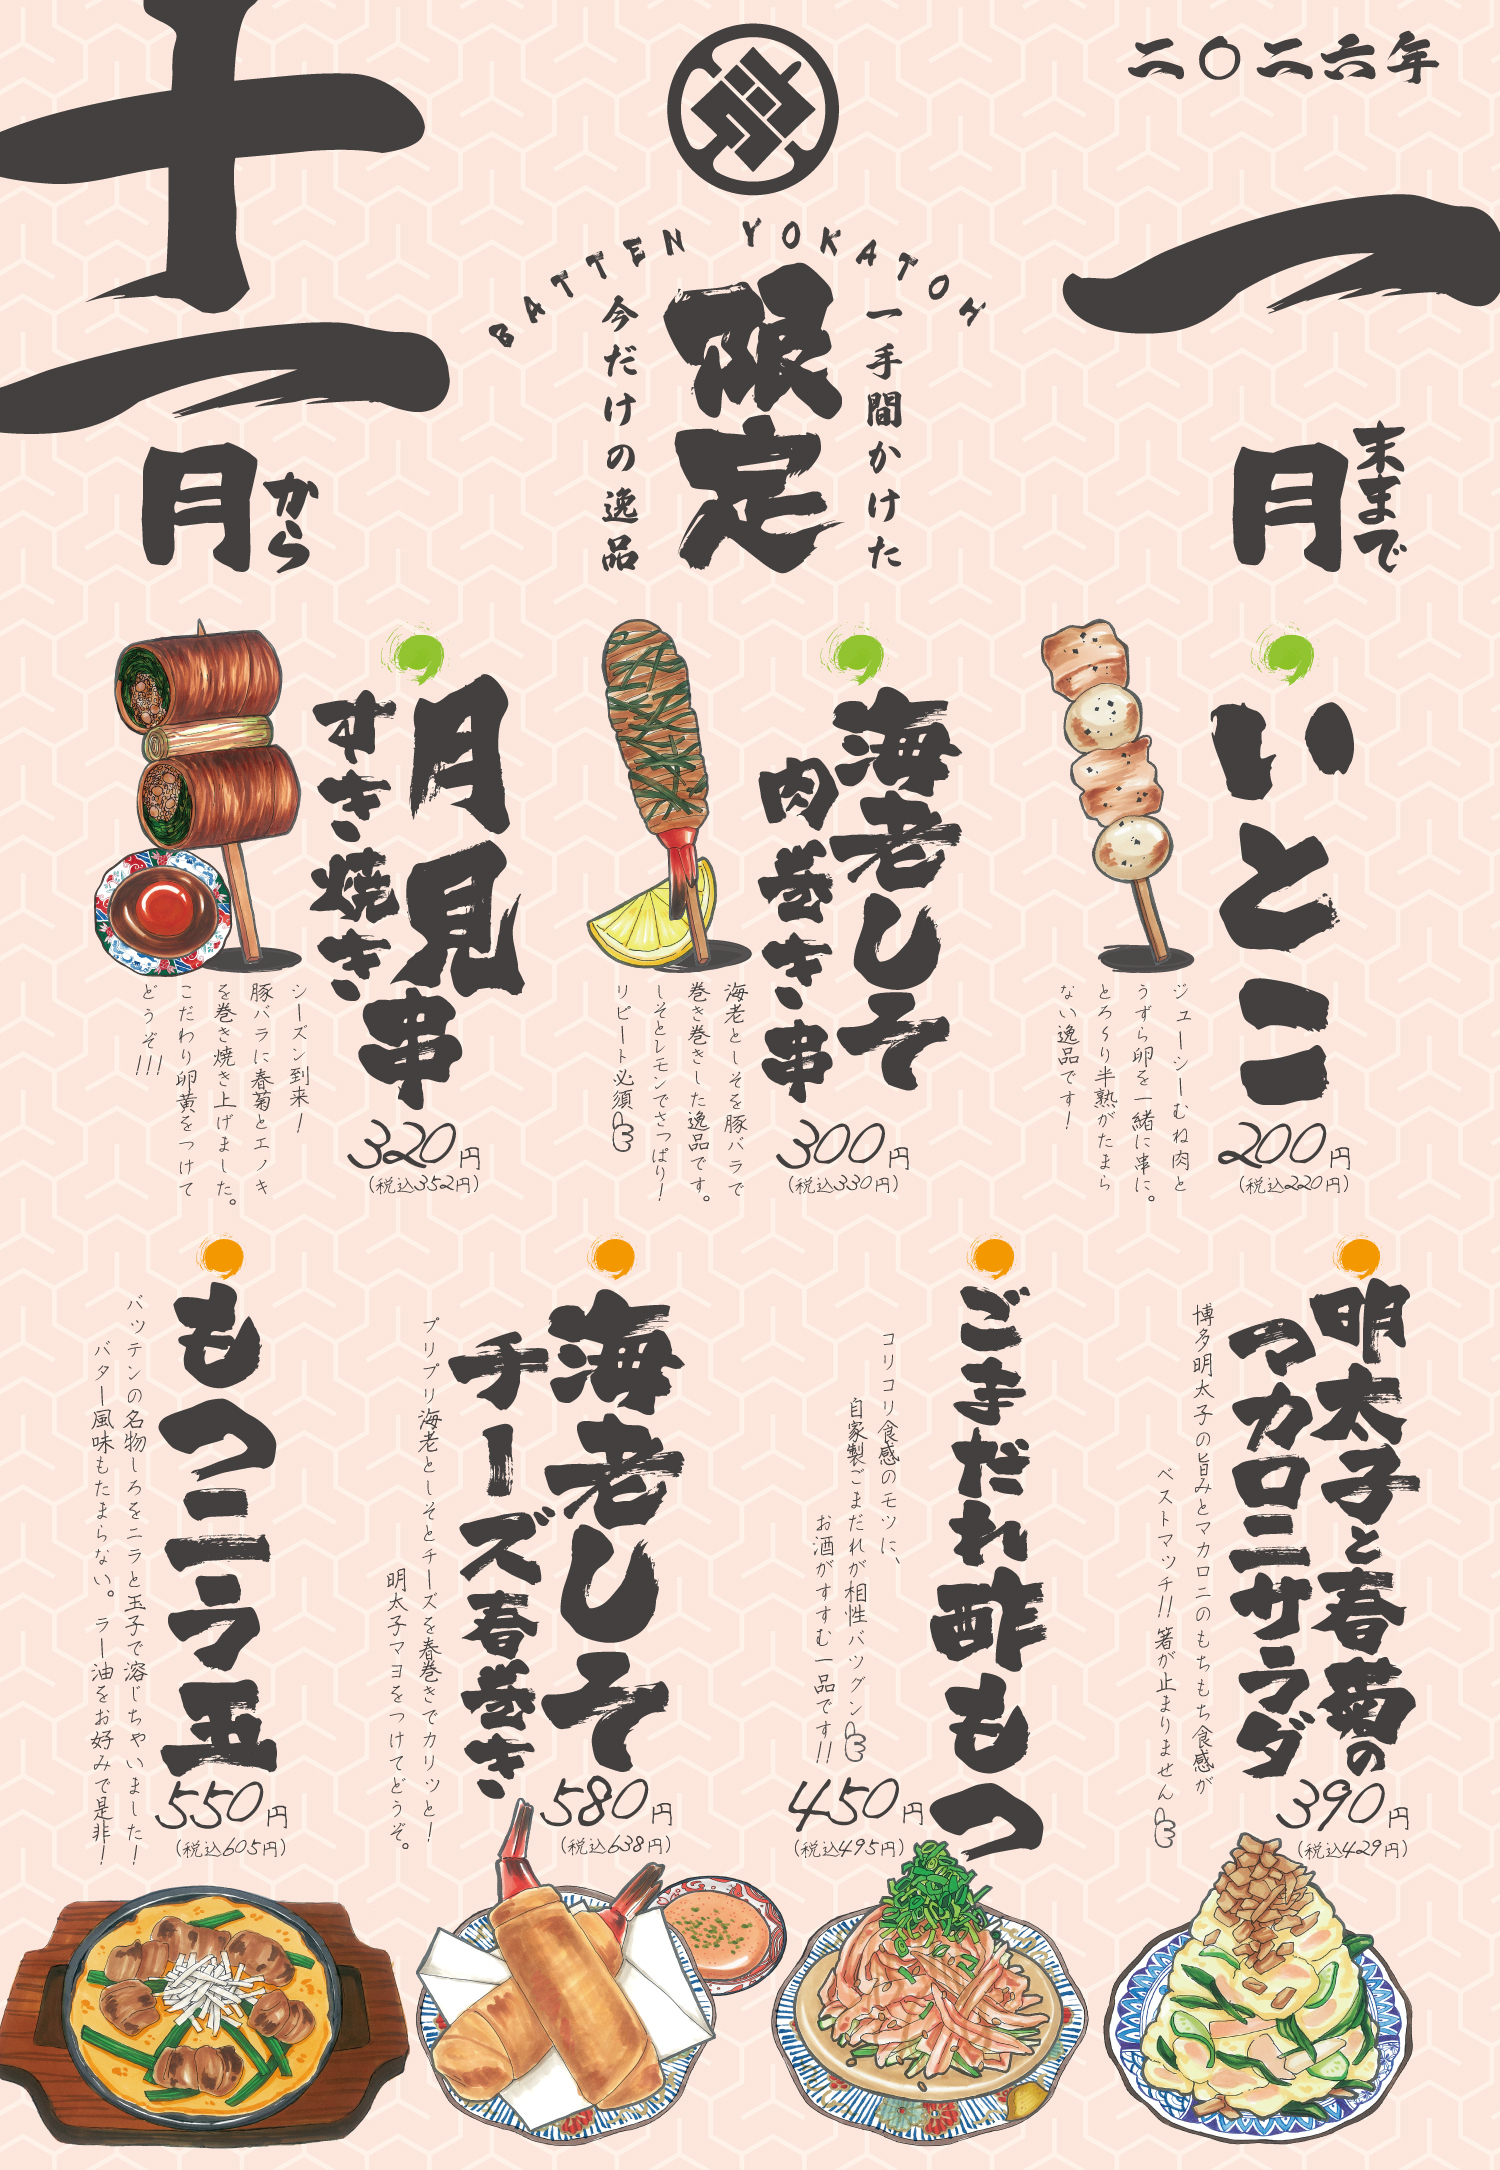 二〇二六年
十一月から
一月末まで
BATTEN YOKATOH
一手間かけた
限定
今だけの逸品
いとこ
200円
(税込220円)
ジューシーむね肉と
うずら卵を一緒に串に。
とろ〜り半熟がたまら
ない逸品です！
海老しそ
肉巻き串
300円
(税込330円)
海老としそを豚バラで
巻き巻きした逸品です。
しそとレモンでさっぱり！
リピート必須
月見
すき焼き
串
320円
(税込352円)
シーズン到来！
豚バラに春菊とエノキ
を巻き焼き上げました。
こだわり卵黄をつけて
どうぞ!!!
明太子と春菊の
マカロニサラダ
390円
(税込429円)
博多明太子の旨みとマカロニのもちもち食感が
ベストマッチ!!箸が止まりません
ごまだれ酢もつ
450円
(税込495円)
コリコリ食感のモツに、
自家製ごまだれが相性バツグン
お酒がすすむ一品です!!
海老しそ
チーズ春巻き
580円
(税込638円)
プリプリ海老としそとチーズを春巻きでカリッと！
明太子マヨをつけてどうぞ。
もつニラ玉
550円
(税込605円)
バッテンの名物しろをニラと玉子で溶じちゃいました！
バター風味もたまらない。ラー油をお好みで是非！